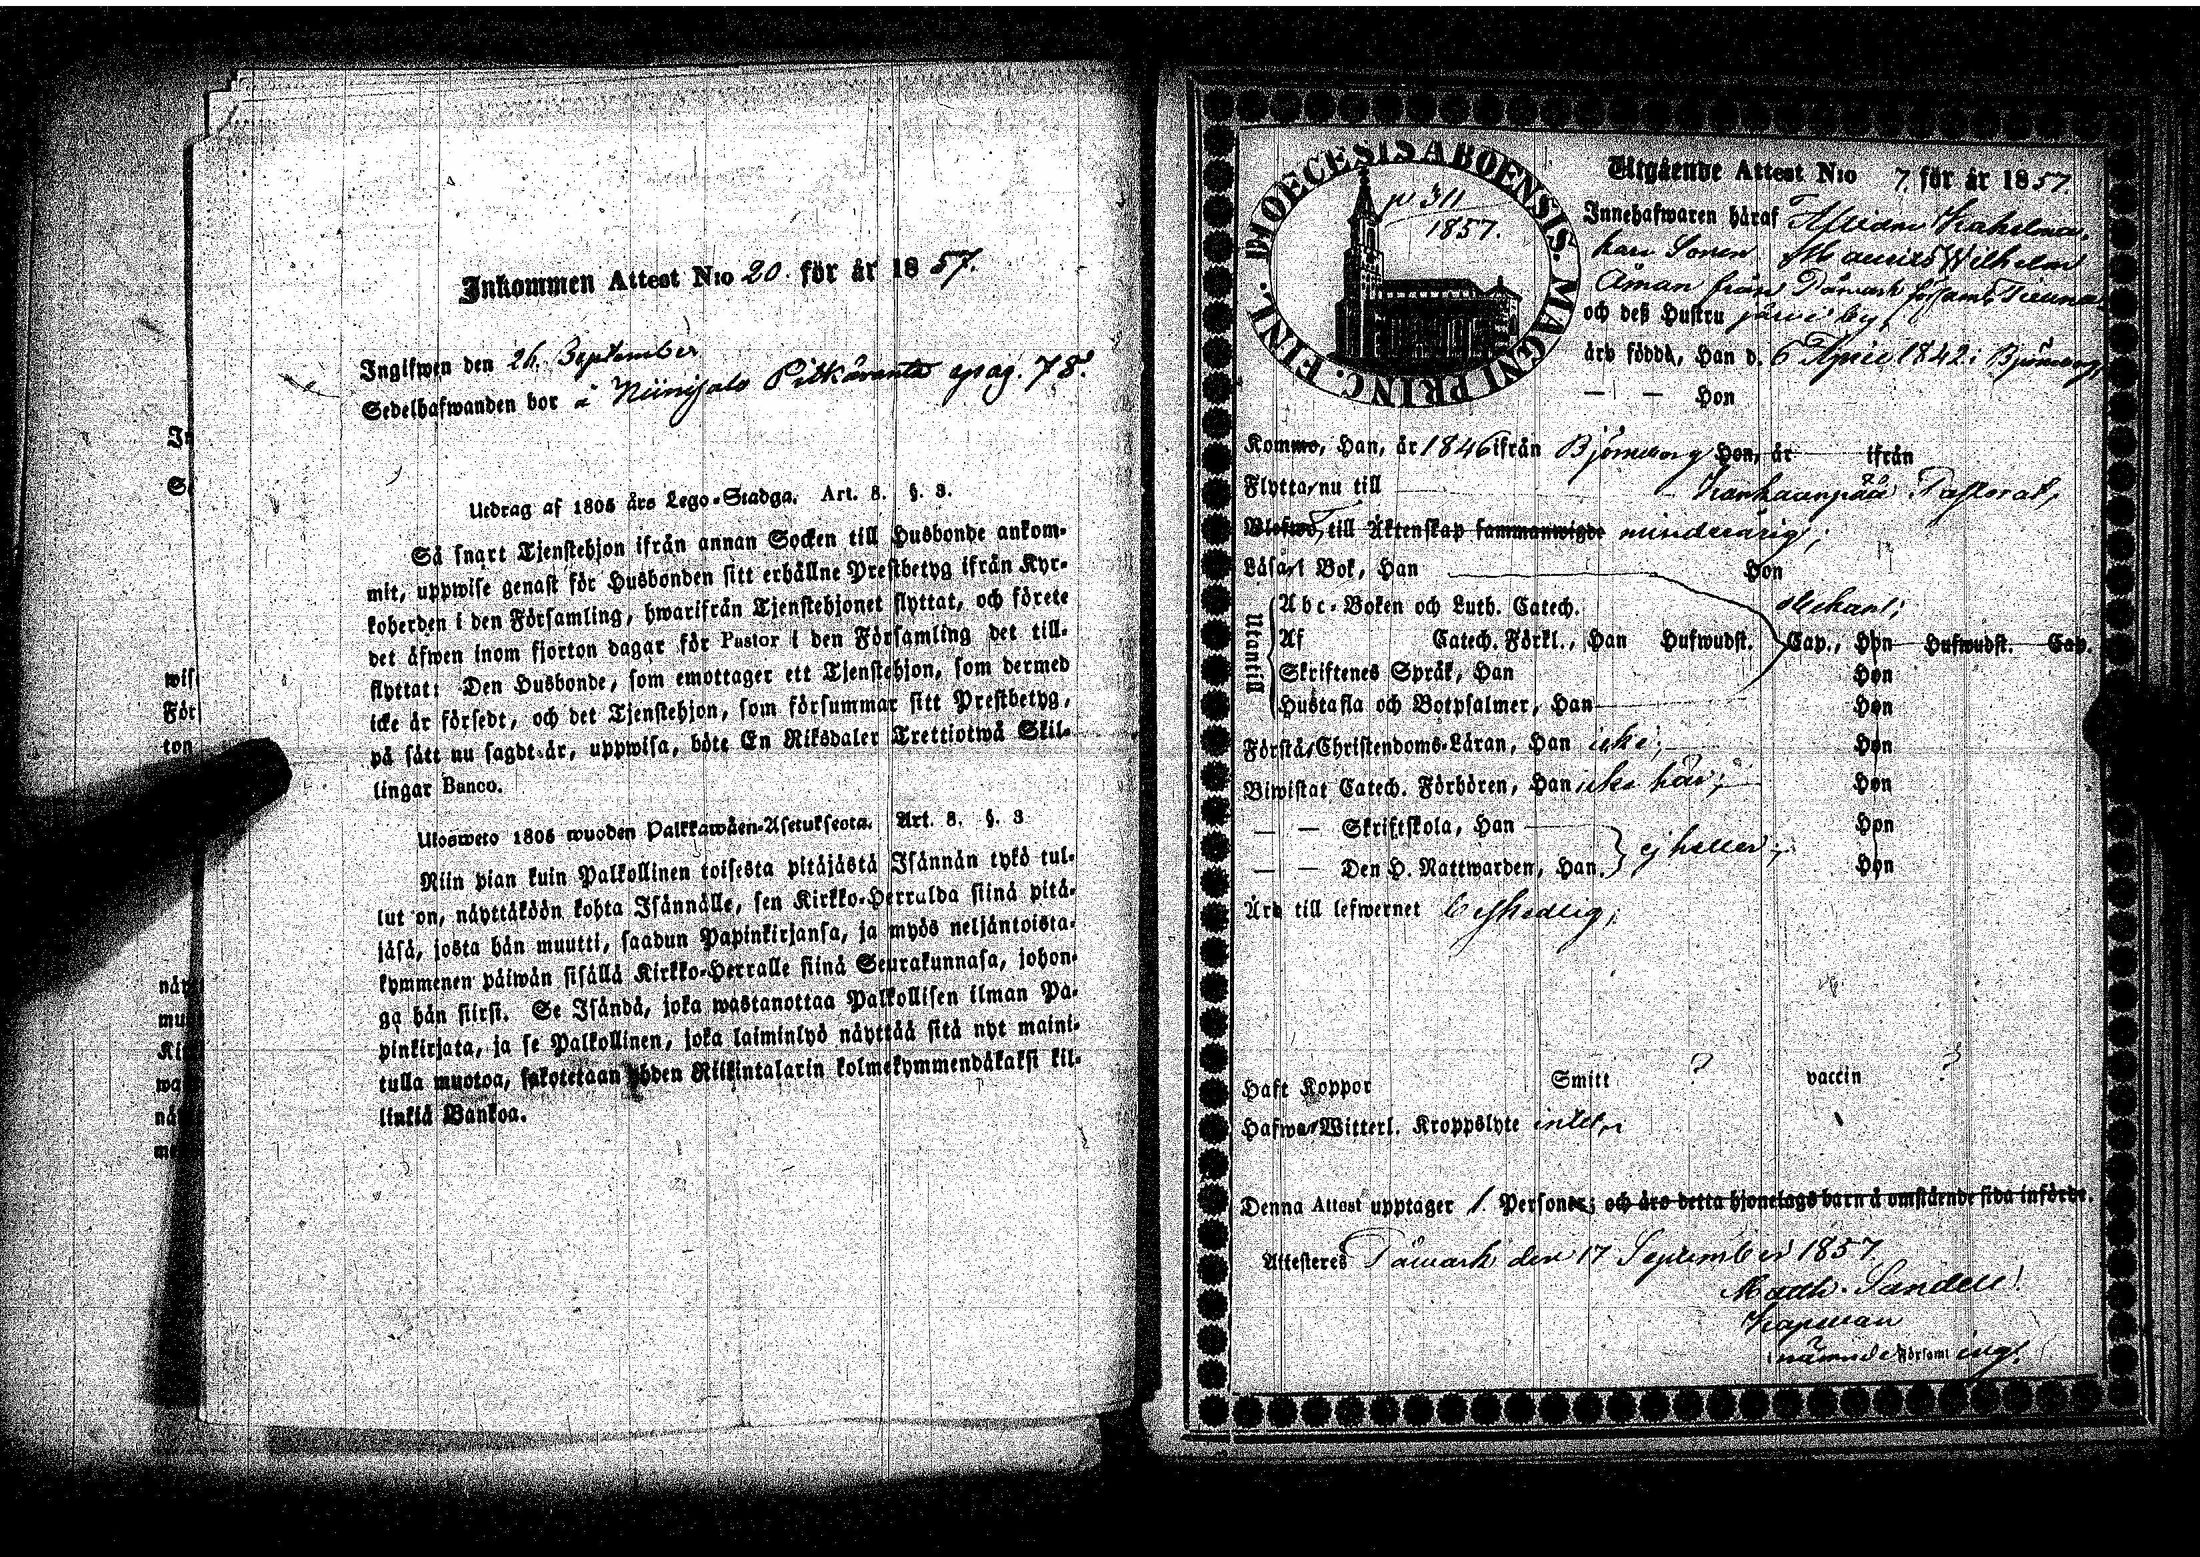 Inkommen Attest N:o 20. för år 1857.
Ingifwen den 26. September
Sedelhafwanden bor å Niinisalo Pitkäranta pag. 78.
Utdrag af 1805 års Lego-Stadga. Art. 8. §. 3.
Så snart Tjenstehjon ifrån annan Socken till Husbonde ankom-
mit, uppwise genast för Husbonden sitt erhållne Prestbetyg ifrån Kyr-
koherden i den Församling, hwarifrån Tjenstehjonet flyttat, och förete
det äfwen inom fjorton dagar för Pastor i den Församling det till-
flyttat: Den Husbonde, som emottager ett Tjenstehjon, som dermed
icke är försedt, och det Tjenstehjon, som försummar sitt Prestbetyg,
på sätt nu sagdt är, uppwisa, böte En Riksdaler Trettiotwå Skil-
lingar Banco.
Ulosweto 1805 wuoden Palkkawäen-Asetuksesta. Art. 8. §. 3
Niin pian kuin Palkollinen toisesta pitäjästä Isännän tykö tul-
lut on, näyttäköön kohta Isännälle, sen Kirkko-Herralda siinä pitä-
jäsä, josta hän muutti, saadun Papinkirjansa, ja myös neljäntoista-
kymmenen päiwän sisällä Kirkko-Herralle siinä Seurakunnasa, johon-
ga hän siirsi. Se Isändä, joka wastanottaa Palkollisen ilman Pa-
pinkirjata, ja se Palkollinen, joka laiminlyö näyttää sitä nyt maini-
tulla muotoa, sakotetaan yhden Riikintalarin kolmekymmendäkaksi kil-
linkiä Bankoa.
DIOECESIS ABOENSIS. MAGNI PRINC. FINL.
p 311
1857.
Utgående Attest N:o 7. för år 1857
Innehafwaren häraf
Sonen Maurits Wilhelm
Åman från Påmark
och deß Hustru järvi by,
äro födda, Han d. 6 April 1842 i Björneborg,
— — Hon
Kommo, Han, år 1846 ifrån Björneborg Hon, år ifrån
Flytta nu till Kankaanpää Pastorat,
till Äktenskap sammanwigde minderårig;
Läsa i Bok, Han Hon
Utantill
Abc-Boken och Luth. Catech.
Af Catech. Förkl., Han Hufwudst. Cap., Hon Hufwudst. Cap.
Skriftenes Språk, Han Hon
Hustafla och Botpsalmer, Han Hon
Förstå Christendoms-Läran, Han icke; Hon
Biwistat Catech. Förhören, Han icke här; Hon
— — Skriftskola, Han Hon
— — Den H. Nattwarden, Han ej heller; Hon
Äro till lefwernet beskedlig;
Haft Koppor Smitt ? vaccin ?
Hafwa Witterl. Kroppslyte intet,
Denna Attest upptager 1. Personer; och äro detta hjonelags barn å omstående sida införde.
Attesteres Påmark den 17 September 1857
Matth. Sandell
Kapellan
i nämnde Församling.